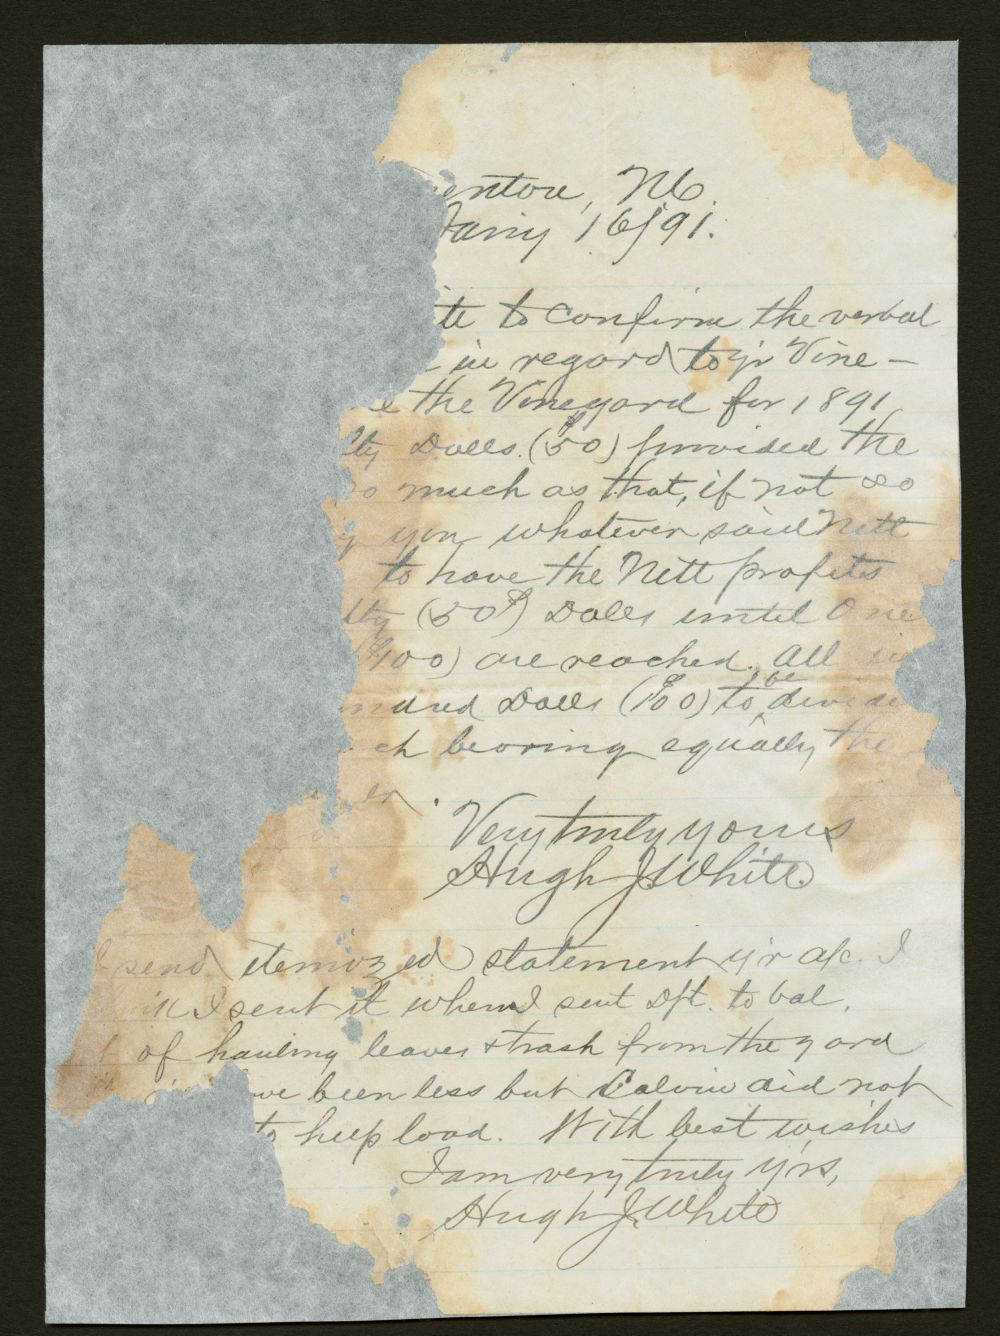 enton, NC.
Jany 16/91.
ite to confirm the verbal
in regard to y'r Vine-
the Vineyard for 1891
fty Dolls. ($50) provided the
so much as that, if not so
y you whatever said Nett
to have the Nett profits
fty (50$) Dolls until One
$100) are reached. All
undred Dolls ($100) to be divide
ch bearing equally the
Very truly yours
Hugh J. White.
I send itemized statement y'r a/c. I
think I sent it when I sent dft. to bal.
of hauling leaves & trash from the yard
ve been less but Calvin did not
to help load. With best wishes
I am very truly y'rs,
Hugh J. White